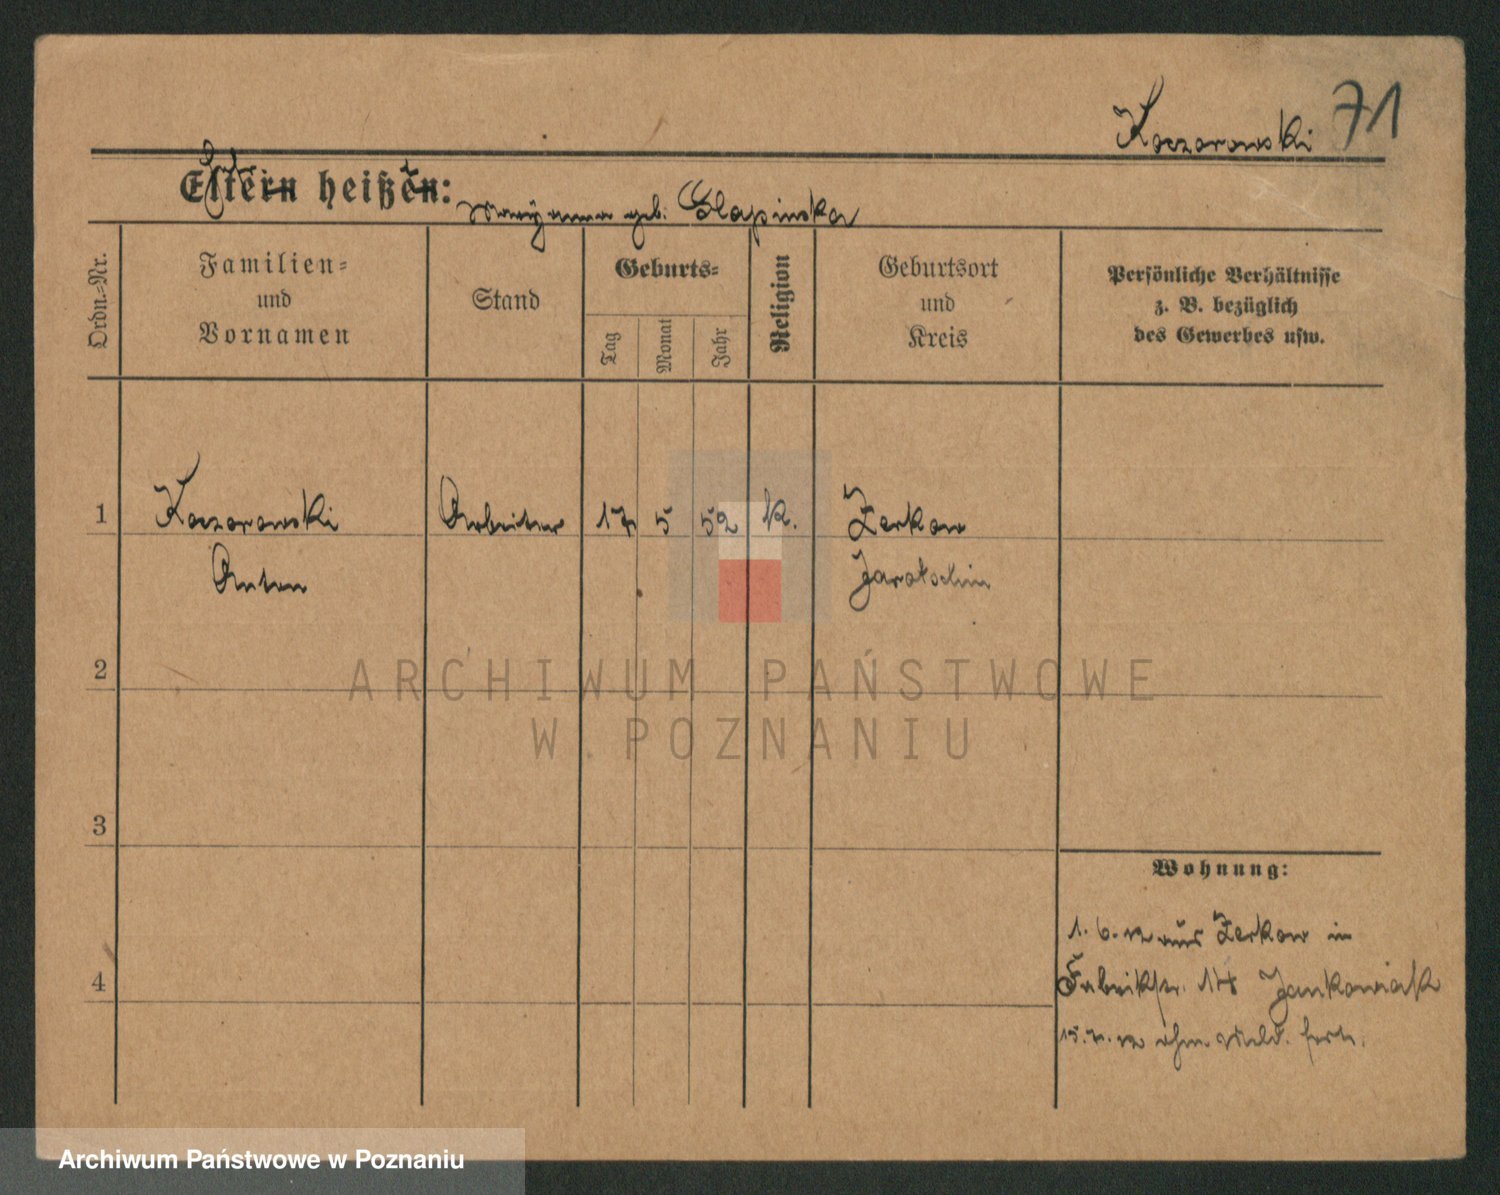 Koczorowski 71
Eltern heißen:
geb. Glapinska
Ordn.-Nr.
Familien-
und
Vornamen
Stand
Geburts-
Tag
Monat
Jahr
Religion
Geburtsort
und
Kreis
Persönliche Verhältnisse
z. B. bezüglich
des Gewerbes usw.
1 Koczorowski Arbeiter 17 5 52 k. Zerkow
Anton Jarotschin
2
ARCHIWUM PAŃSTWOWE
W POZNANIU
3
Wohnung:
1. 6. 12 aus Zerkow in
4
Fabrikstr. 14 Jankowiak
15. 7. 12 ohne Meld. fort.
Archiwum Państwowe w Poznaniu